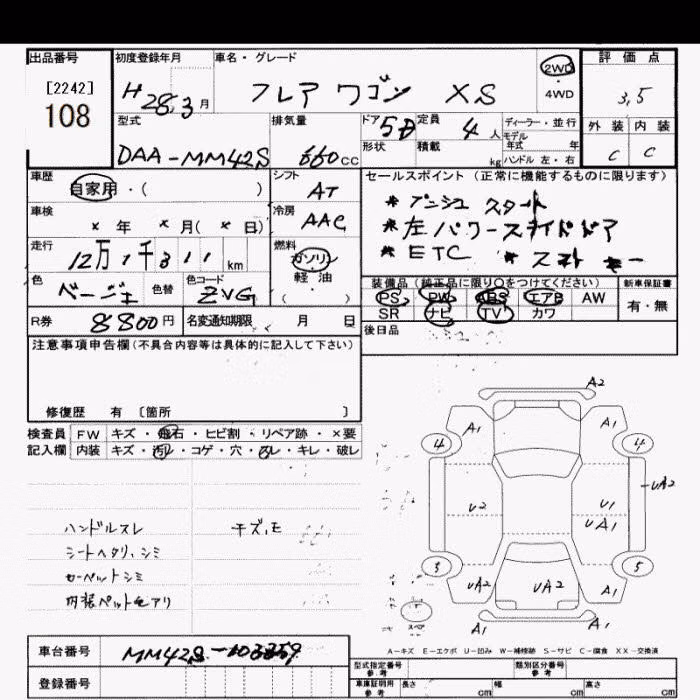 出品番号 初度登録年月 車名・グレード 評価点
[2242] 108
H28.3月 フレアワゴン XS 2WD ・ 4WD 3.5
型式 排気量 ドア 5D 定員 4人 ディーラー・並行 外装 内装
DAA-MM42S 660cc 形状 積載 kg モデル年式 年 C C
ハンドル 左・右
車歴 シフト セールスポイント(正常に機能するものに限ります)
自家用・( ) AT
* プッシュスタート
車検 × 年 × 月( × 日) 冷房 AAC
* 左パワースライドドア
走行 12万1千311km 燃料 ガソリン 軽・油 ( )
* ETC * スマートキー
色 ベージュ 色替 色コード ZVG
装備品(純正品に限り○をつけてください) 新車保証書
PS PW ABS エアB AW 有・無
SR ナビ TV カワ
R券 8800円 名変通知期限 月 日
後日品
注意事項申告欄(不具合内容等は具体的に記入して下さい)
修復歴 有 〔箇所 〕
検査員 FW キズ・飛石・ヒビ割・リペア跡・×要
記入欄 内装 キズ・汚レ・コゲ・穴・スレ・キレ・破レ
ハンドルスレ キズ、モ
シートヘタリ、シミ
カーペットシミ
内張ペットモアリ
A2
A1 A1
4 4
U2 U1 UA2
UA1
3 5
UA2 UA2 A1
スペア A1 A1
A-キズ E-エクボ U-凹み W-補修跡 S-サビ C-腐食 XX-交換済
車台番号 MM42S-103359
型式指定番号 参考 類別区分番号 参考
登録番号
車庫証明用 参考 長さ cm 幅 cm 高さ cm